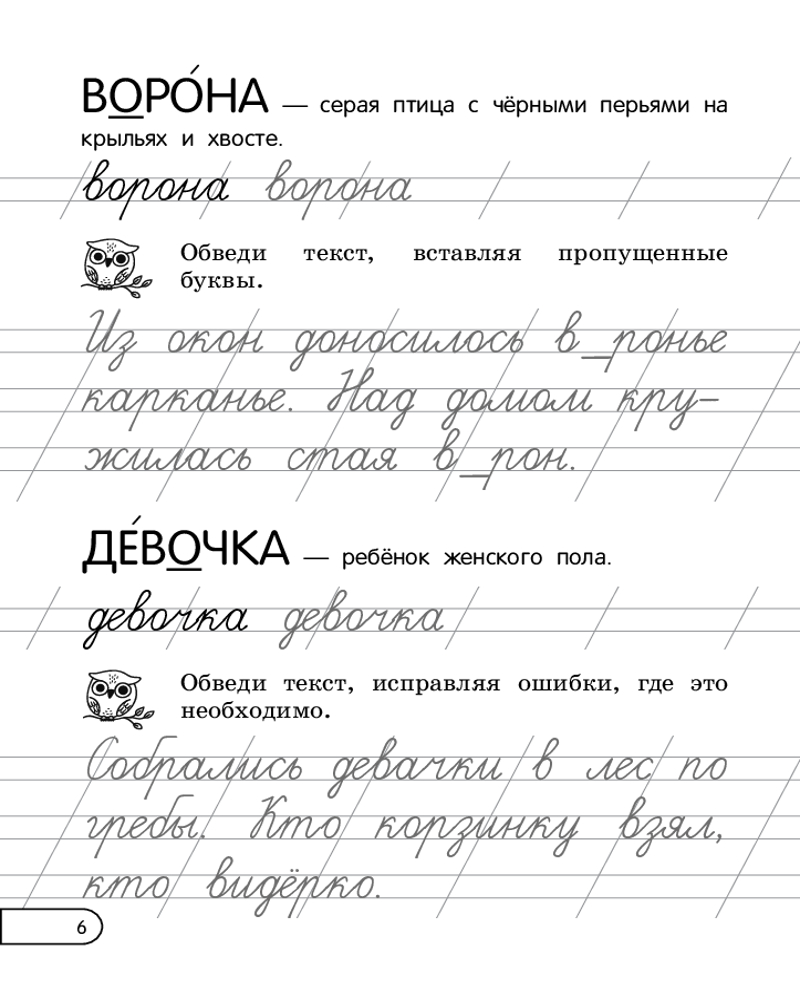 ВОРО́НА — серая птица с чёрными перьями на
крыльях и хвосте.
ворона ворона
Обведи текст, вставляя пропущенные
буквы.
Из окон доносилось в_ронье
карканье. Над домом кру-
жилась стая в_рон.
ДЕ́ВОЧКА — ребёнок женского пола.
девочка девочка
Обведи текст, исправляя ошибки, где это
необходимо.
Собрались девачки в лес по
гребы. Кто корзинку взял,
кто видёрко.
6